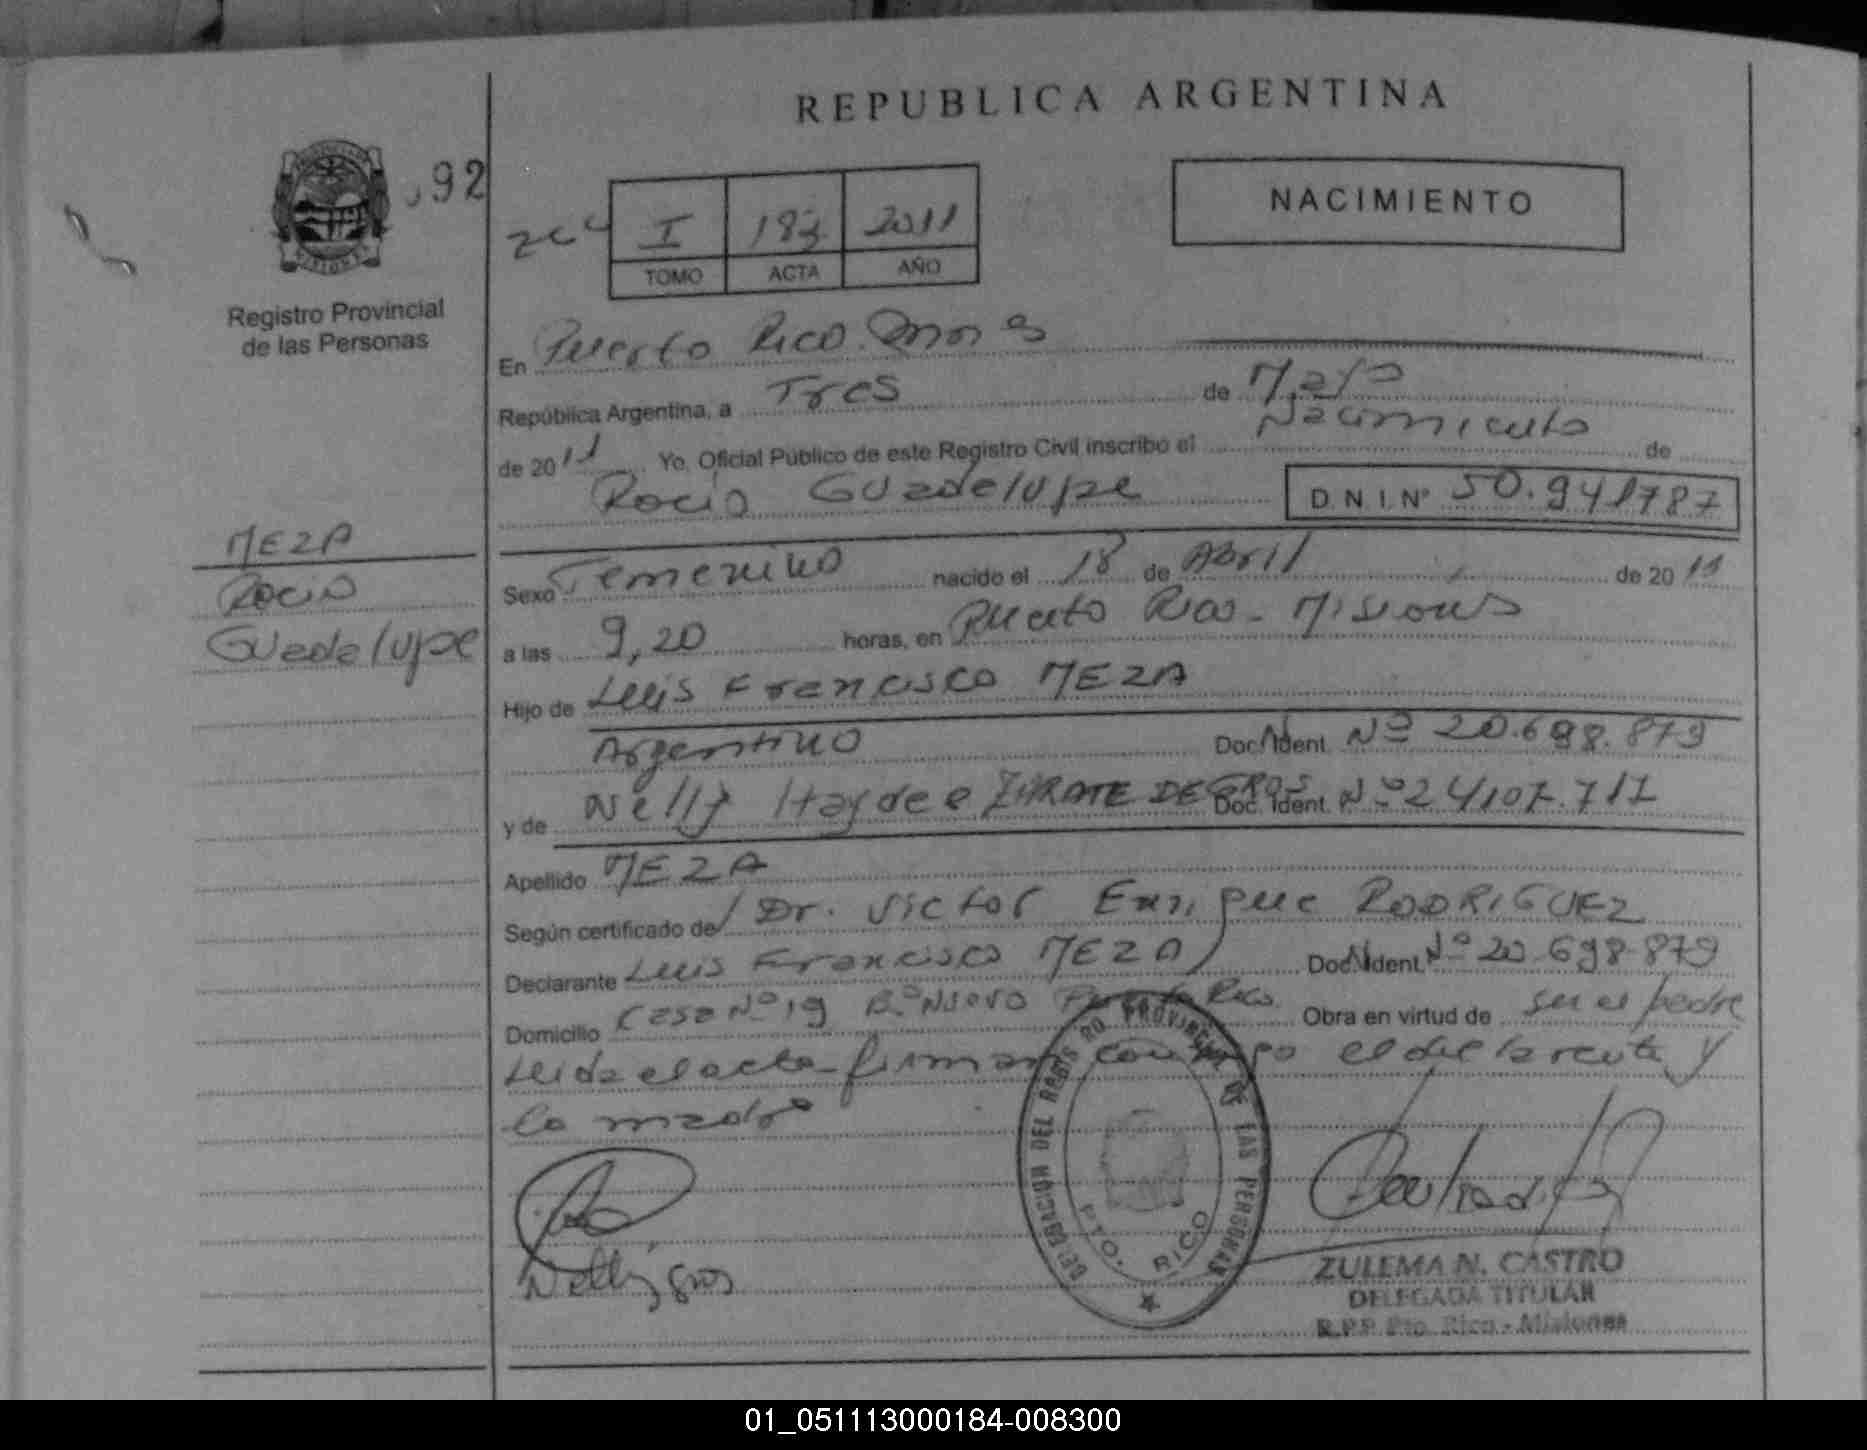 REPUBLICA ARGENTINA
92
NACIMIENTO
I 183 2011
TOMO ACTA AÑO
Registro Provincial
de las Personas
En Puerto Rico
República Argentina, a Tres de Mayo
de 2011 Yo, Oficial Público de este Registro Civil inscribo el Nacimiento de
Rocio Guadalupe D.N.I.Nº 50.941787
MEZA
Rocio
Guadalupe
Sexo Femenino nacido el 18 de Abril de 2011
a las 9,20 horas, en Puerto Rico - Misiones
Hijo de Luis Francisco MEZA
Argentino Doc. Ident. Nº 20.698.879
y de Nelly Haydee ZARATE DE GROS Doc. Ident. Nº 24107.717
Apellido MEZA
Según certificado de Dr. Victor Enrique RODRIGUEZ
Declarante Luis Francisco MEZA Doc. Ident. Nº 20.698.879
Domicilio Casa Nº 19 Bº Nuevo Puerto Rico Obra en virtud de ser el padre
Leida el acta firman conmigo el declarante y
la madre
DELEGACION DEL REGISTRO PROVINCIAL DE LAS PERSONAS
PTO. RICO
Nelly gros
ZULEMA N. CASTRO
DELEGADA TITULAR
R.P.P. Pto. Rico - Misiones
01_051113000184-008300